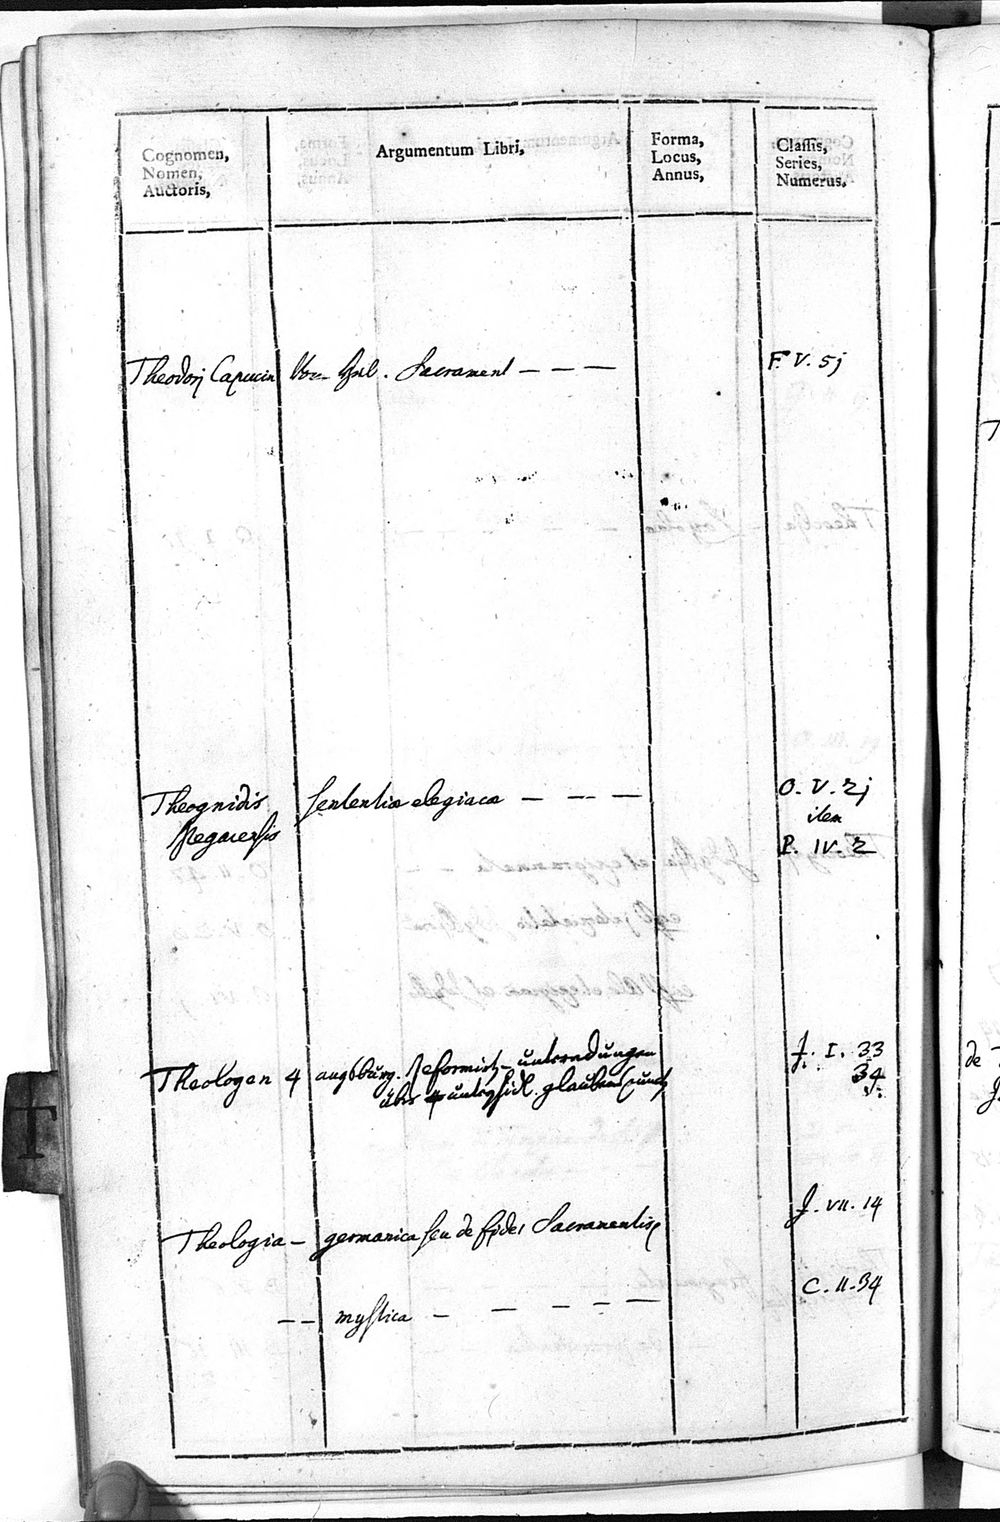 Cognomen,
Nomen,
Auctoris,
Argumentum Libri,
Forma,
Locus,
Annus,
Classis,
Series,
Numerus,
Theodorj Capucin Von Sacrament - - - F. V. 5j
Theognidis sententiæ elegiacæ - - - O. V. 2j
Megarensis item
P. IV. 2
Theologen 4 augsburg. Reformirt- unterredungen J. I. 33
über 4 unterschidl. glaubens punct 34
Theologia - germanica seu de fidei Sacramentis J. VII. 14
- - mystica - - - - - C. II. 34
T